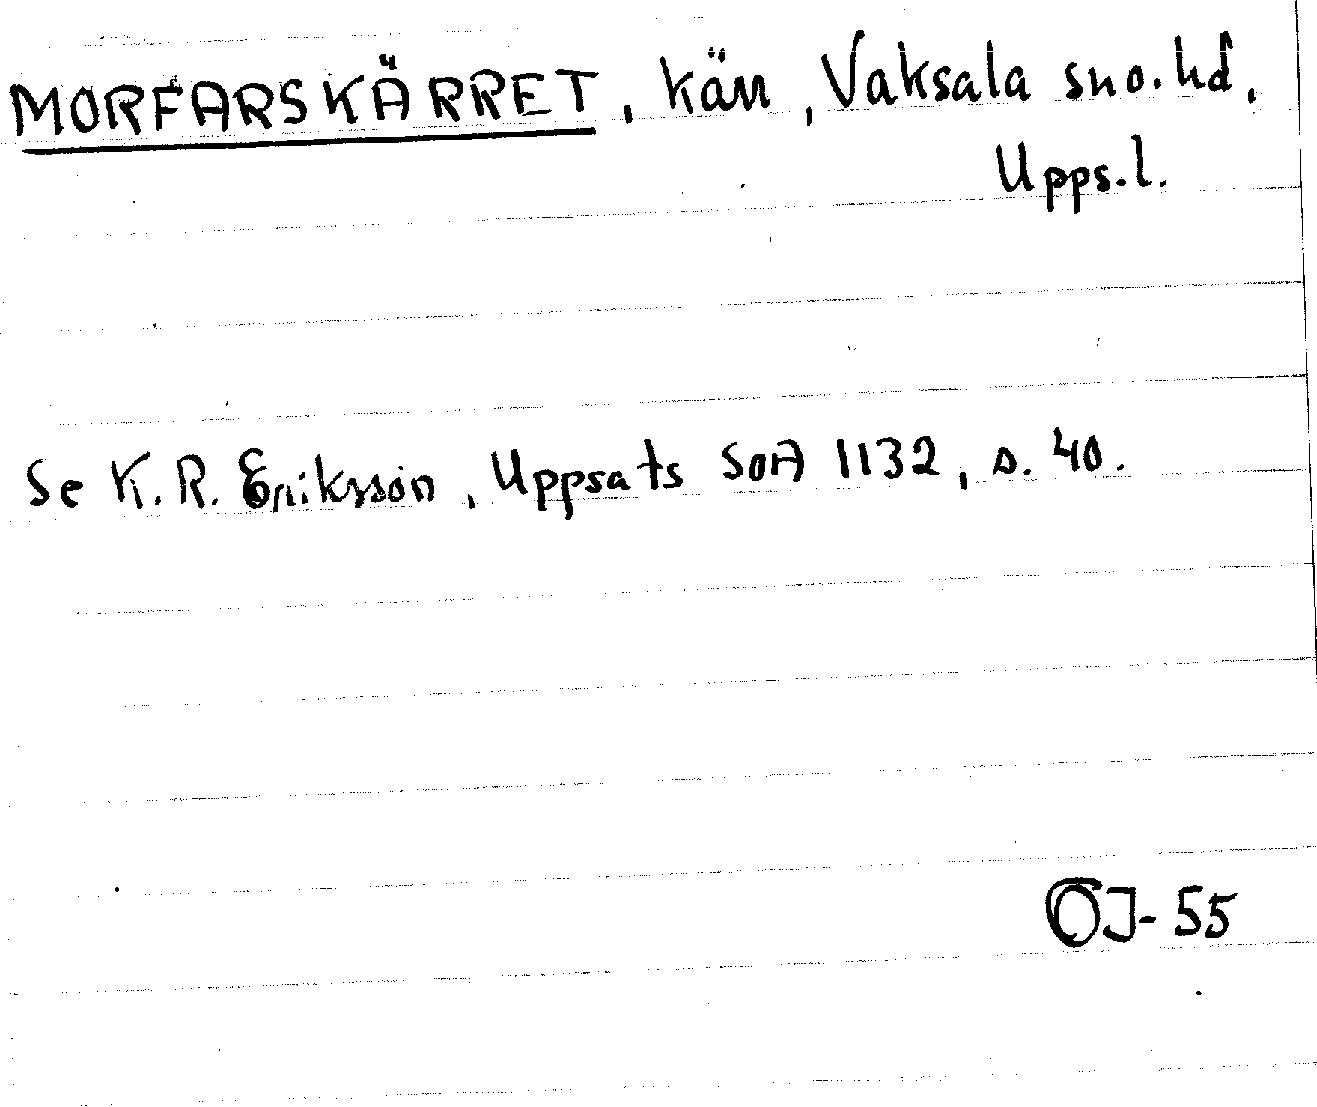 MORFARSKÄRRET, kärr, Vaksala sno.hd,
Upps.l.
Se K.R. Eriksson, Uppsats SOA 1132, s. 40.
OJ-55